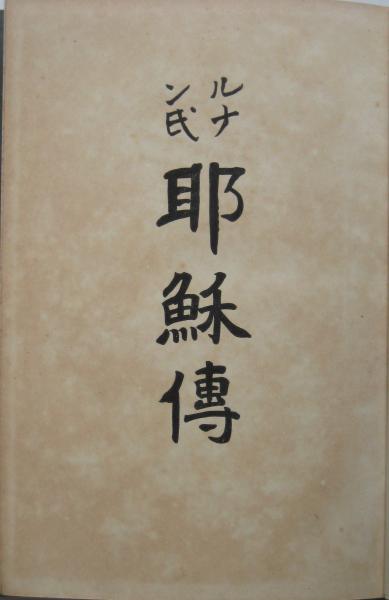 ルナン氏
耶穌傳